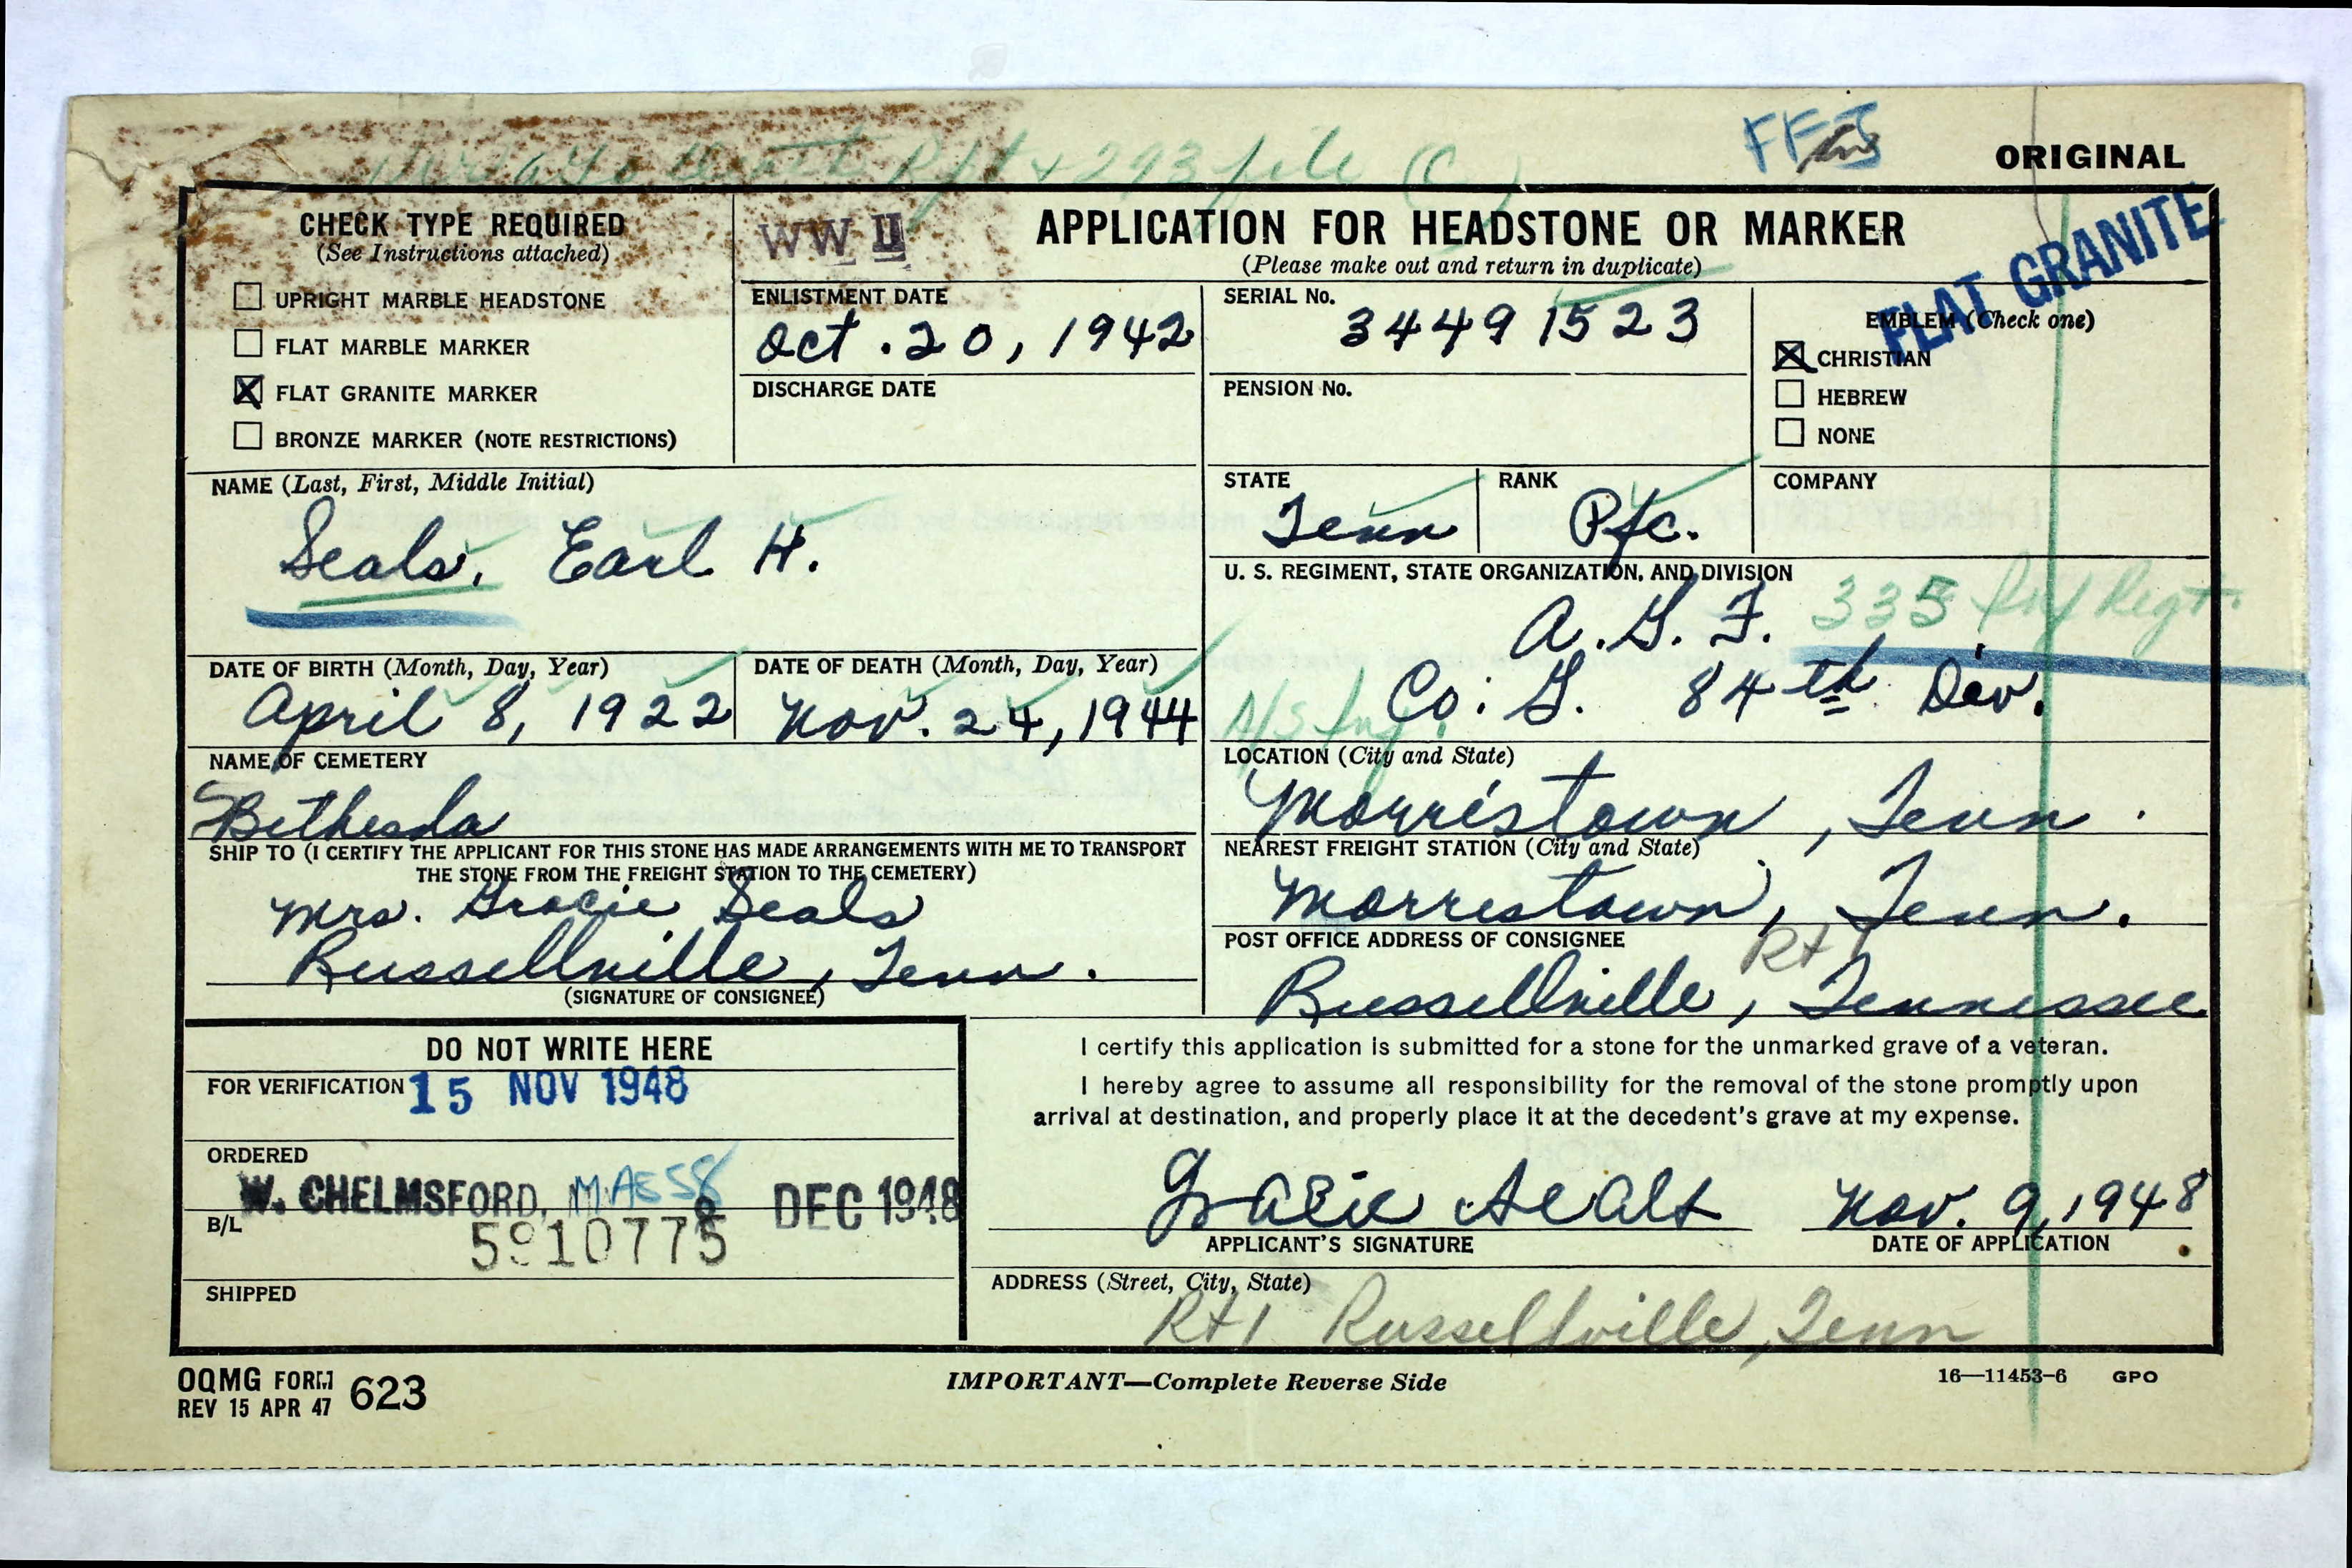 Rpt + 293 file (C)
FF
ORIGINAL
CHECK TYPE REQUIRED
(See Instructions attached)
UPRIGHT MARBLE HEADSTONE
FLAT MARBLE MARKER
FLAT GRANITE MARKER
BRONZE MARKER (NOTE RESTRICTIONS)
WW II
APPLICATION FOR HEADSTONE OR MARKER
(Please make out and return in duplicate)
FLAT GRANITE
ENLISTMENT DATE
Oct. 20, 1942
DISCHARGE DATE
SERIAL No.
34491523
PENSION No.
EMBLEM (Check one)
CHRISTIAN
HEBREW
NONE
NAME (Last, First, Middle Initial)
Seals, Earl H.
STATE
Tenn
RANK
Pfc.
COMPANY
U. S. REGIMENT, STATE ORGANIZATION, AND DIVISION
A. G. F. 335 Inf Regt.
Co. G. 84th Div.
DATE OF BIRTH (Month, Day, Year)
April 8, 1922
DATE OF DEATH (Month, Day, Year)
Nov. 24, 1944
A/S Inf.
NAME OF CEMETERY
Bethesda
LOCATION (City and State)
Morristown, Tenn.
SHIP TO (I CERTIFY THE APPLICANT FOR THIS STONE HAS MADE ARRANGEMENTS WITH ME TO TRANSPORT
THE STONE FROM THE FREIGHT STATION TO THE CEMETERY)
Mrs. Gracie Seals
Russellville, Tenn.
(SIGNATURE OF CONSIGNEE)
NEAREST FREIGHT STATION (City and State)
Morrestown, Tenn.
POST OFFICE ADDRESS OF CONSIGNEE
Rt 1
Russellville, Tennessee
DO NOT WRITE HERE
FOR VERIFICATION
15 NOV 1948
ORDERED
W. CHELMSFORD, MASS
8 DEC 1948
B/L
5910775
SHIPPED
I certify this application is submitted for a stone for the unmarked grave of a veteran.
I hereby agree to assume all responsibility for the removal of the stone promptly upon
arrival at destination, and properly place it at the decedent's grave at my expense.
Gracie Seals Nov. 9, 1948
APPLICANT'S SIGNATURE
DATE OF APPLICATION
ADDRESS (Street, City, State)
Rt 1 Russellville, Tenn
OQMG FORM 623
REV 15 APR 47
IMPORTANT—Complete Reverse Side
16—11453-6 GPO